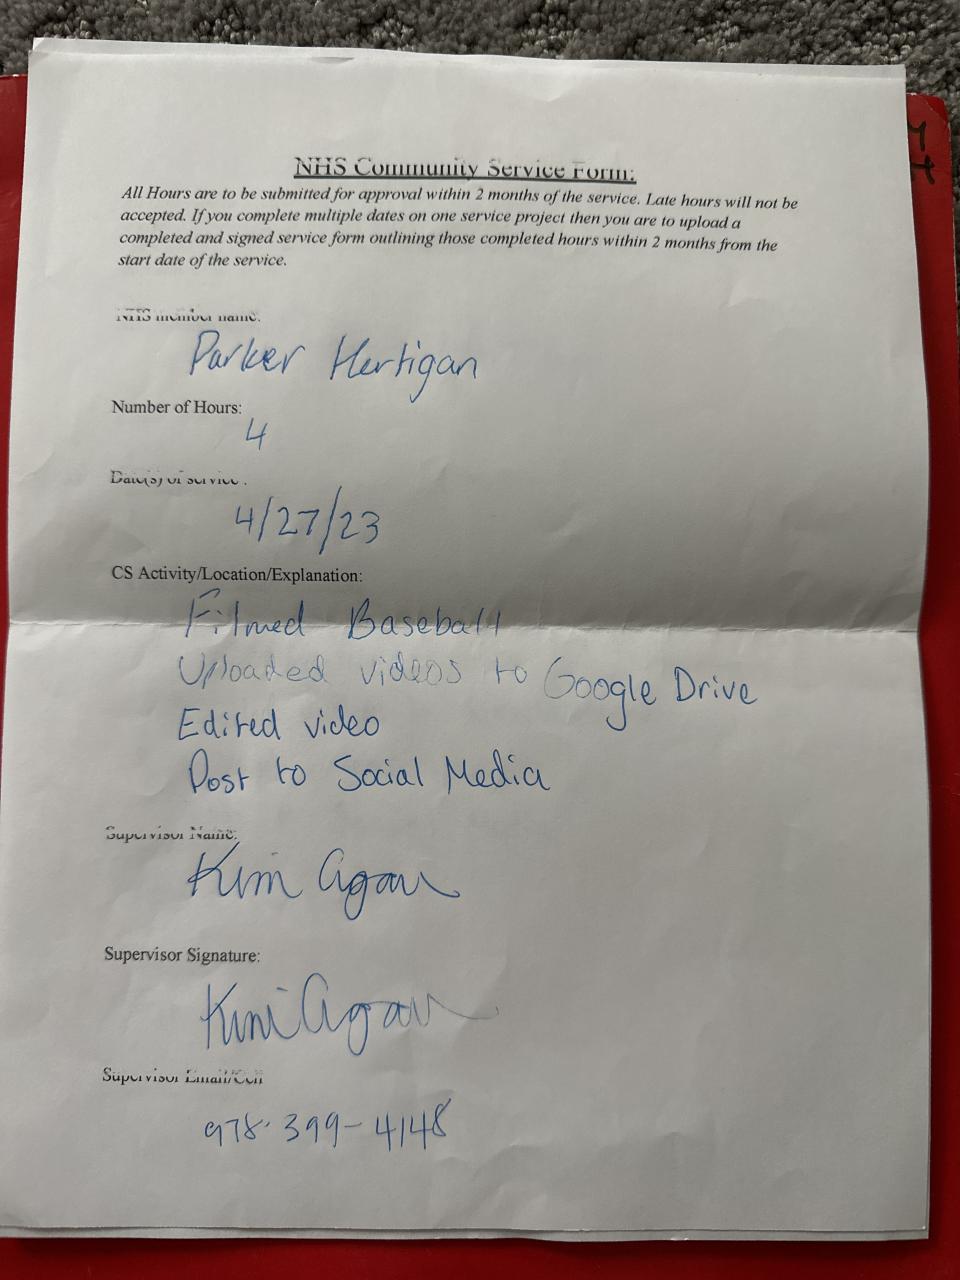 NHS Community Service Form:
All Hours are to be submitted for approval within 2 months of the service. Late hours will not be
accepted. If you complete multiple dates on one service project then you are to upload a
completed and signed service form outlining those completed hours within 2 months from the
start date of the service.
NHS member name:
Parker Hertigan
Number of Hours:
4
Date(s) of service :
4/27/23
CS Activity/Location/Explanation:
Filmed Baseball
Uploaded videos to Google Drive
Edited video
Post to Social Media
Supervisor Name:
Kim Agan
Supervisor Signature:
Kim Agan
Supervisor Email/Cell
978-399-4148